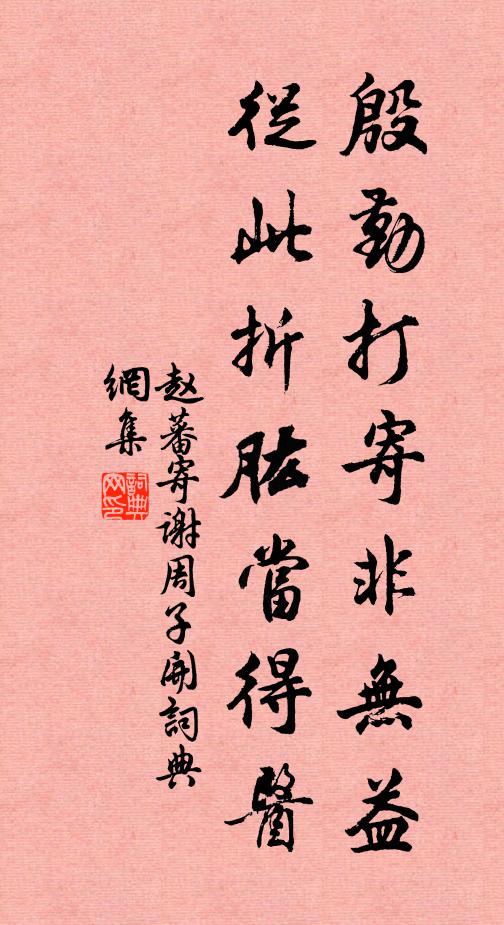 殷勤打寄非無益
從此折肱當得醫
赵蕃寄谢周子開詞典
網集
詞典
网印